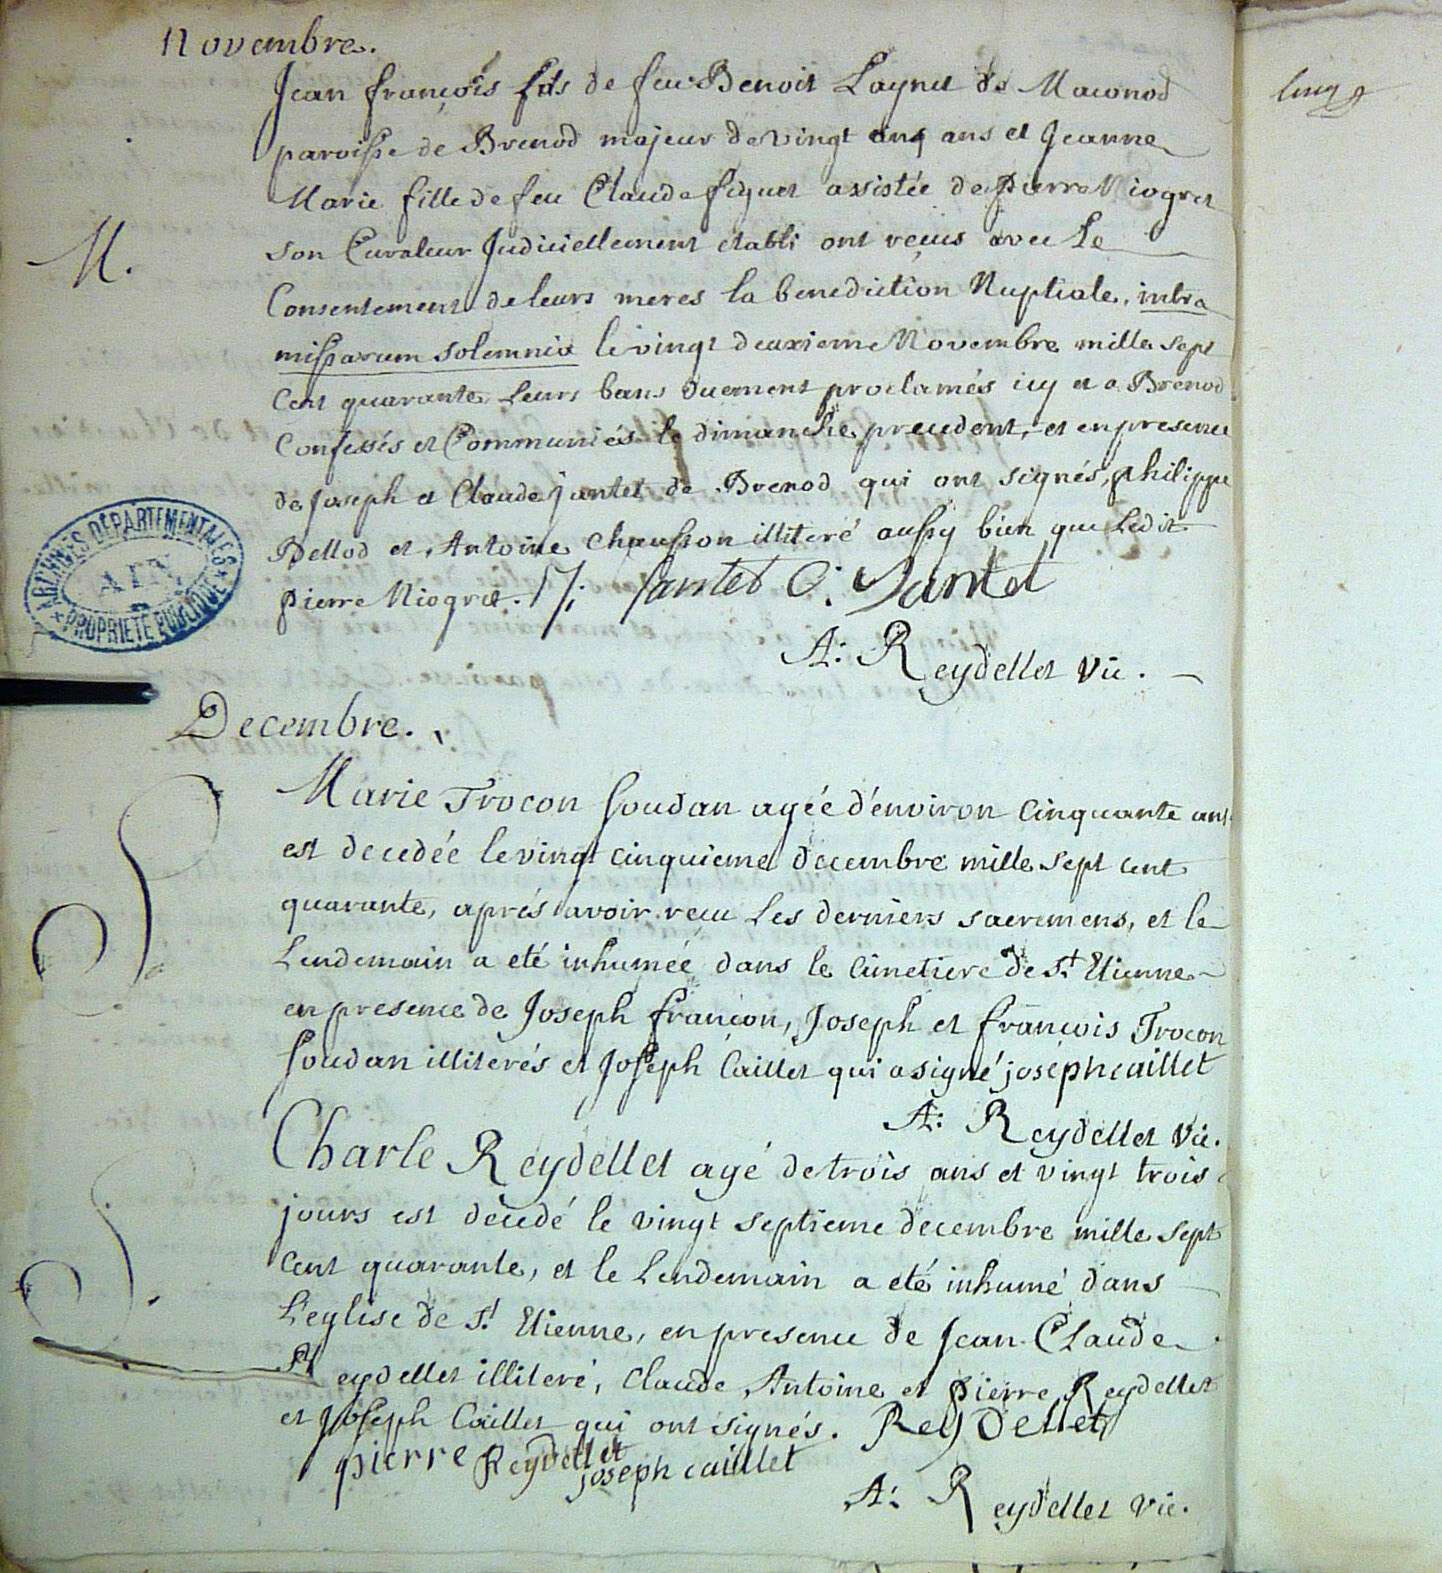 Novembre.
Jean françois fils de feu Benoit Laynet de Maconod
paroisse de Brenod majeur de vingt cinq ans et Jeanne
Marie fille de feu Claude fiquet assistée de pierre Niogret
M.
son Curateur Judiciellement etabli ont reçus avec Le
Consentement de leurs meres la benediction Nuptiale, intra
missarum solemnia le vingt deuxieme Novembre mille sept
Cent quarante. Leurs bans duement proclamés icy et a Brenod
Confessés et Communiés le dimanche precedent, et en presence
de Joseph et Claude jantet de Brenod qui ont signés, philippe
Bellod et Antoine Chausson illiteré aussy bien que Ledit
pierre Niogret. Jantet C: Jantet
ARCHIVES DÉPARTEMENTALES
AIN
PROPRIÉTÉ PUBLIQUE
A: Reydellet Vic.
Decembre.
Marie Trocon Soudan agée d'environ Cinquante ans
est decedée le vingt cinquieme decembre mille sept cent
quarante, aprés avoir recu Les derniers sacremens, et le
S
Lendemain a eté inhumée dans le Cimetiere de St. Etienne
en presence de Joseph françon, Joseph et françois Trocon
Soudan illiterés et Joseph Caillet qui a signé joseph caillet
A: Reydellet Vic.
Charle Reydellet agé de trois ans et vingt trois
jours est décedé le vingt septieme decembre mille sept
Cent quarante, et le Lendemain a eté inhumé dans
S.
L'eglise de St. Etienne, en presence de Jean Claude
Reydellet illiteré, Claude Antoine et pierre Reydellet
et Joseph Caillet qui ont signés. ReyDellet
pierre Reydellet
joseph caillet
A: Reydellet Vic.